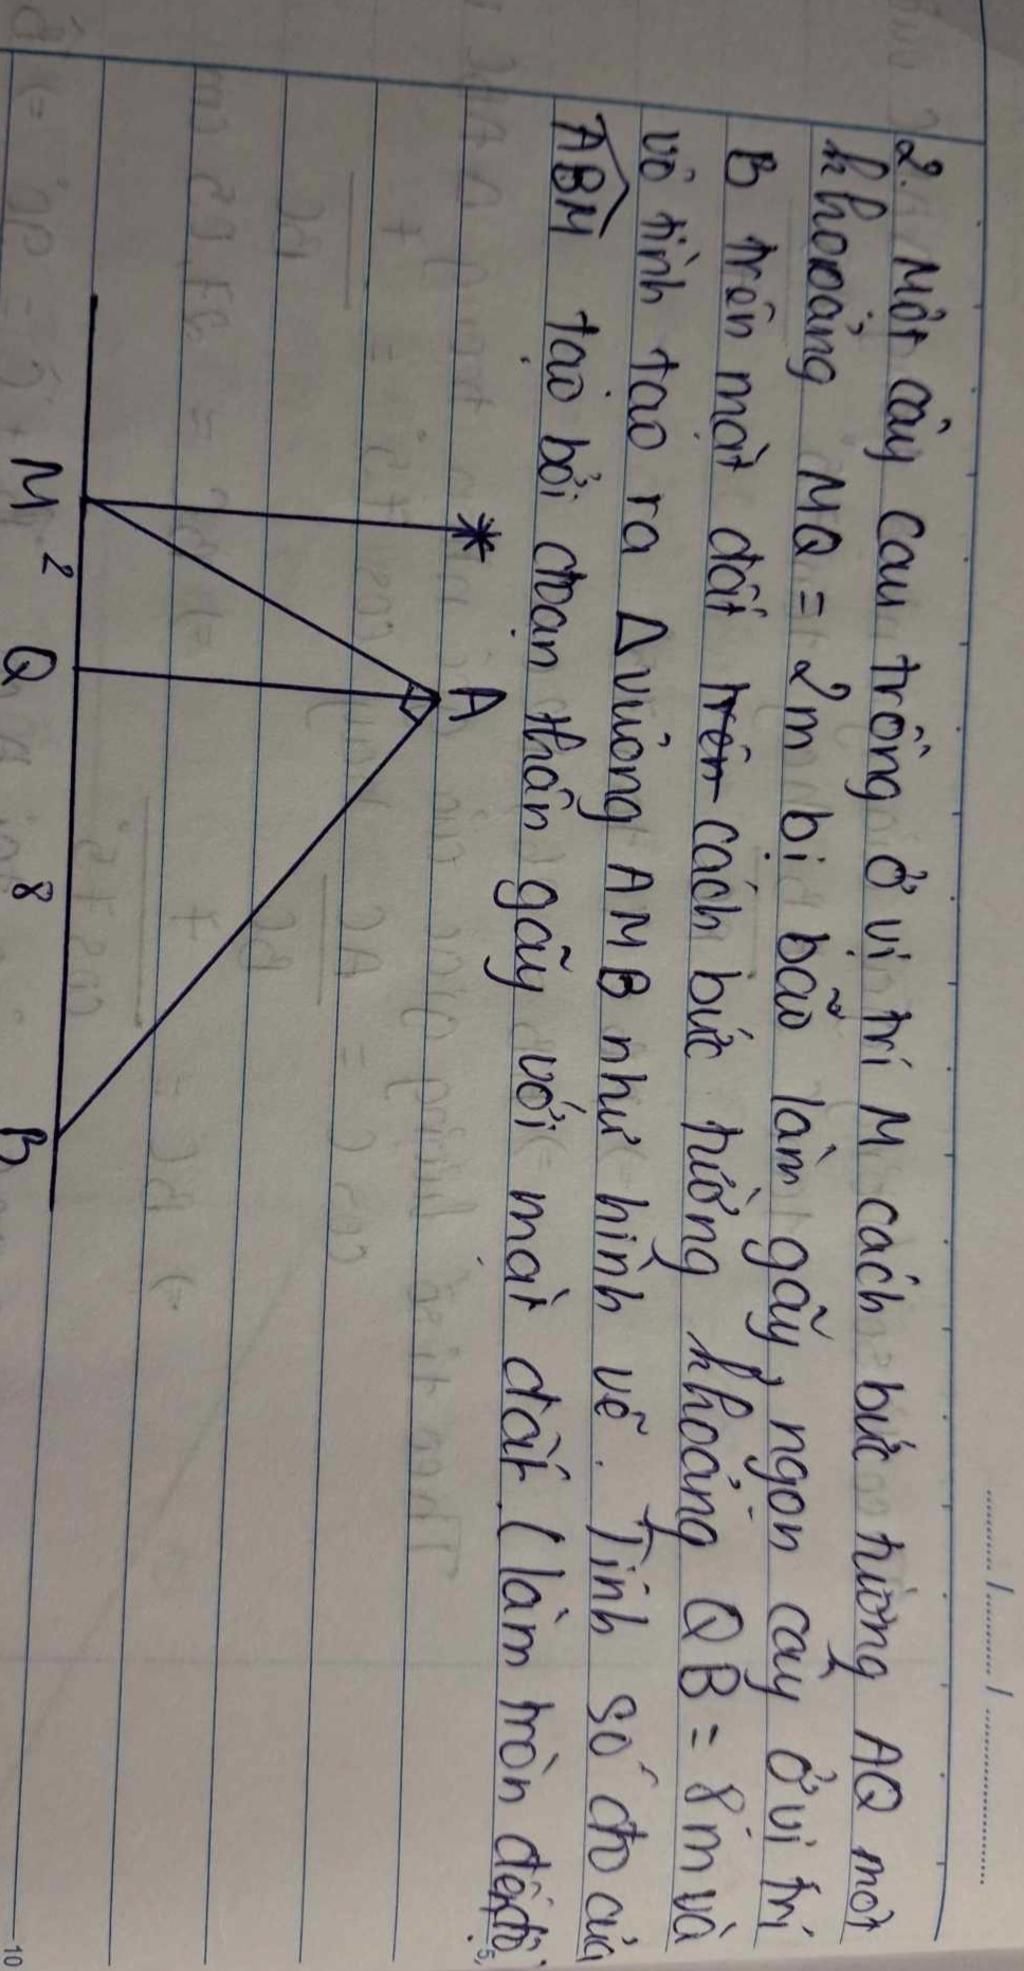 2. Một cây cau trồng ở vị trí M cách bức tường AQ một
khoảng MQ = 2m bị bão làm gãy, ngọn cây ở vị trí
B trên mặt đất cách bức tường khoảng QB = 8m và
vô tình tạo ra Δ vuông AMB như hình vẽ. Tính số đo của
ABM tạo bởi đoạn thân gãy với mặt đất (làm tròn đến độ
A
M 2 Q 8 B
5
10